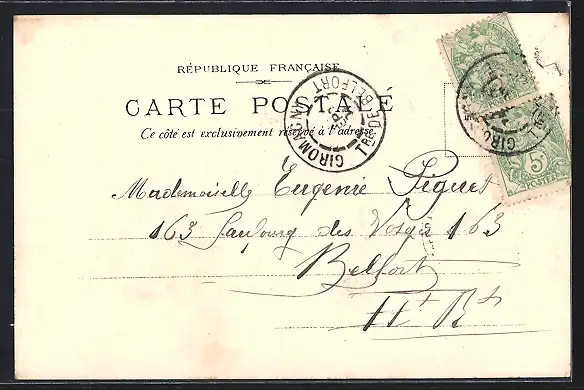 RÉPUBLIQUE FRANÇAISE
CARTE POSTALE
Ce côté est exclusivement réservé à l'adresse.
GIROMAGNY
TRE DE BELFORT
5
POSTES
Mademoiselle Eugenie Piguet
163 Faubourg des Vosges 163
Belfort
Ht Rh